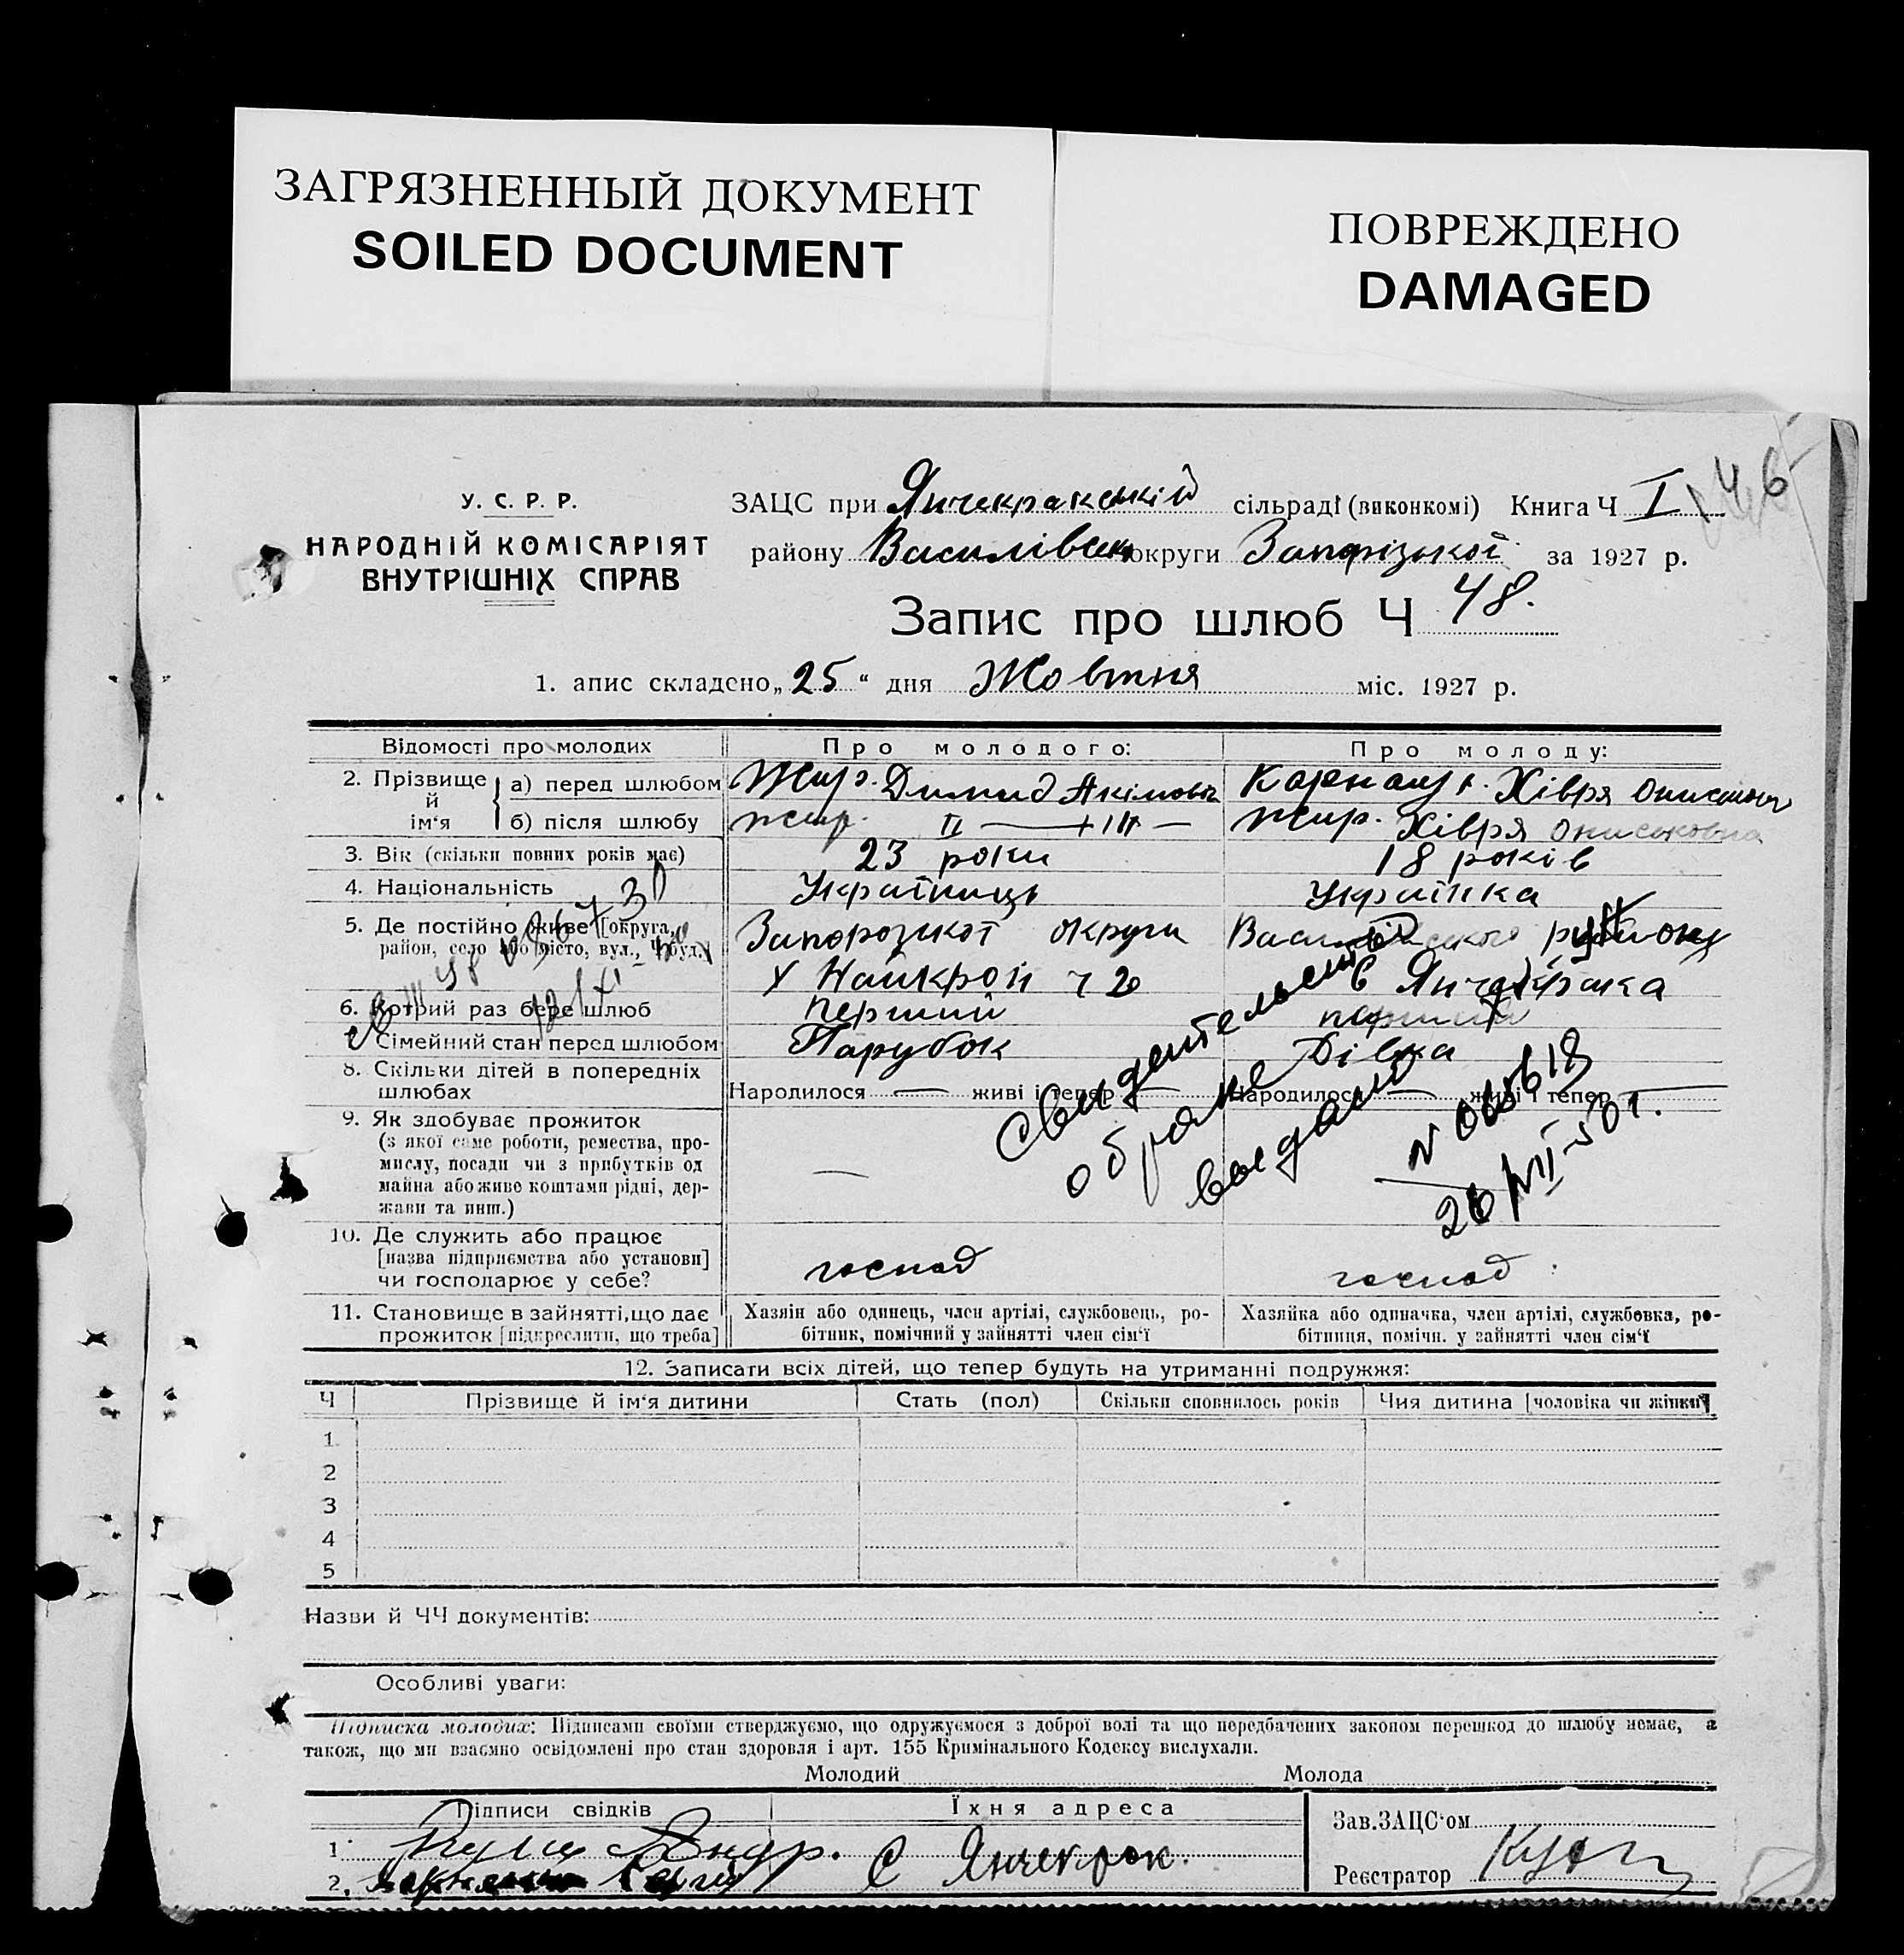 ЗАГРЯЗНЕННЫЙ ДОКУМЕНТ
SOILED DOCUMENT
ПОВРЕЖДЕНО
DAMAGED
46
У. С. Р. Р.
НАРОДНІЙ КОМІСАРІЯТ
ВНУТРІШНІХ СПРАВ
ЗАЦС при Янчекракській сільраді (виконкомі) Книга Ч I
району Василівськ округи Запорізької за 1927 р.
Запис про шлюб Ч 48.
1. апис складено „25“ дня Жовтня міс. 1927 р.
Відомості про молодих
Про молодого:
Про молоду:
2. Прізвище й ім‘я
а) перед шлюбом
Жир. Димид Акімович
Хівря
б) після шлюбу
жир.
жир. Хівря
3. Вік (скільки повних років має)
23 роки
18 років
4. Національність
Українець
Українка
5. Де постійно живе [округа, район, село або місто, вул., Ч буд.]
Запорозкої округи
Янчекрака
6. Котрий раз бере шлюб
перший
перший
Сімейний стан перед шлюбом
Парубок
Дівка
8. Скільки дітей в попередніх шлюбах
Народилося — живі і тепер —
Народилося — живі і тепер —
9. Як здобуває прожиток
(з якої саме роботи, ремества, про-
мислу, посади чи з прибутків од
майна або живе коштами рідні, дер-
жави та инш.)
—
свидетельство
о браке
выдано
10. Де служить або працює
[назва підприємства або установи]
чи господарює у себе?
господ
господ
11. Становище в зайнятті, що дає
прожиток [підкреслити, що треба]
Хазяін або одинець, член артілі, службовець, ро-
бітник, помічний у зайнятті член сім‘ї
Хазяйка або одиначка, член артілі, службовка, ро-
бітниця, помічн. у зайнятті член сім‘ї
12. Записати всіх дітей, що тепер будуть на утриманні подружжя:
Ч
Прізвище й ім‘я дитини
Стать (пол)
Скільки сповнилось років
Чия дитина [чоловіка чи жінки]
1
2
3
4
5
Назви й ЧЧ документів:
Особливі уваги:
Підписка молодих: Підписами своїми стверджуємо, що одружуємося з доброї волі та що передбачених законом перешкод до шлюбу немає, а
також, що ми взаємно освідомлені про стан здоровля і арт. 155 Кримінального Кодексу вислухали.
Молодий
Молода
Підписи свідків
Їхня адреса
Зав. ЗАЦС‘ом
1
С Янчекрак.
2.
Реєстратор